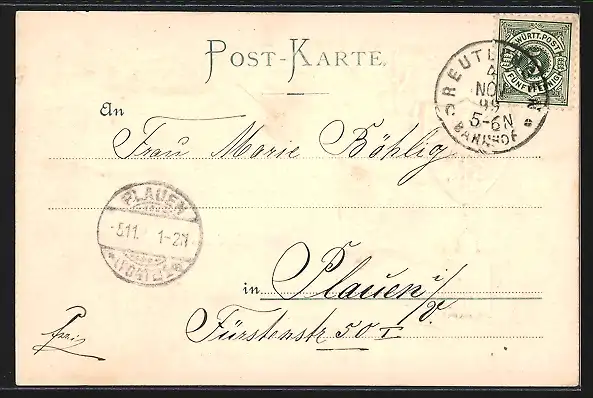 POST-KARTE.
WÜRTT. POST
FÜNF PFENNIG
REUTLINGEN
4
NO
99
5-6N
BAHNHOF
An
Frau Marie Böhlig
PLAUEN
5.11. 1-2N
in Plauen i/V.
Fürstenstr 50 I